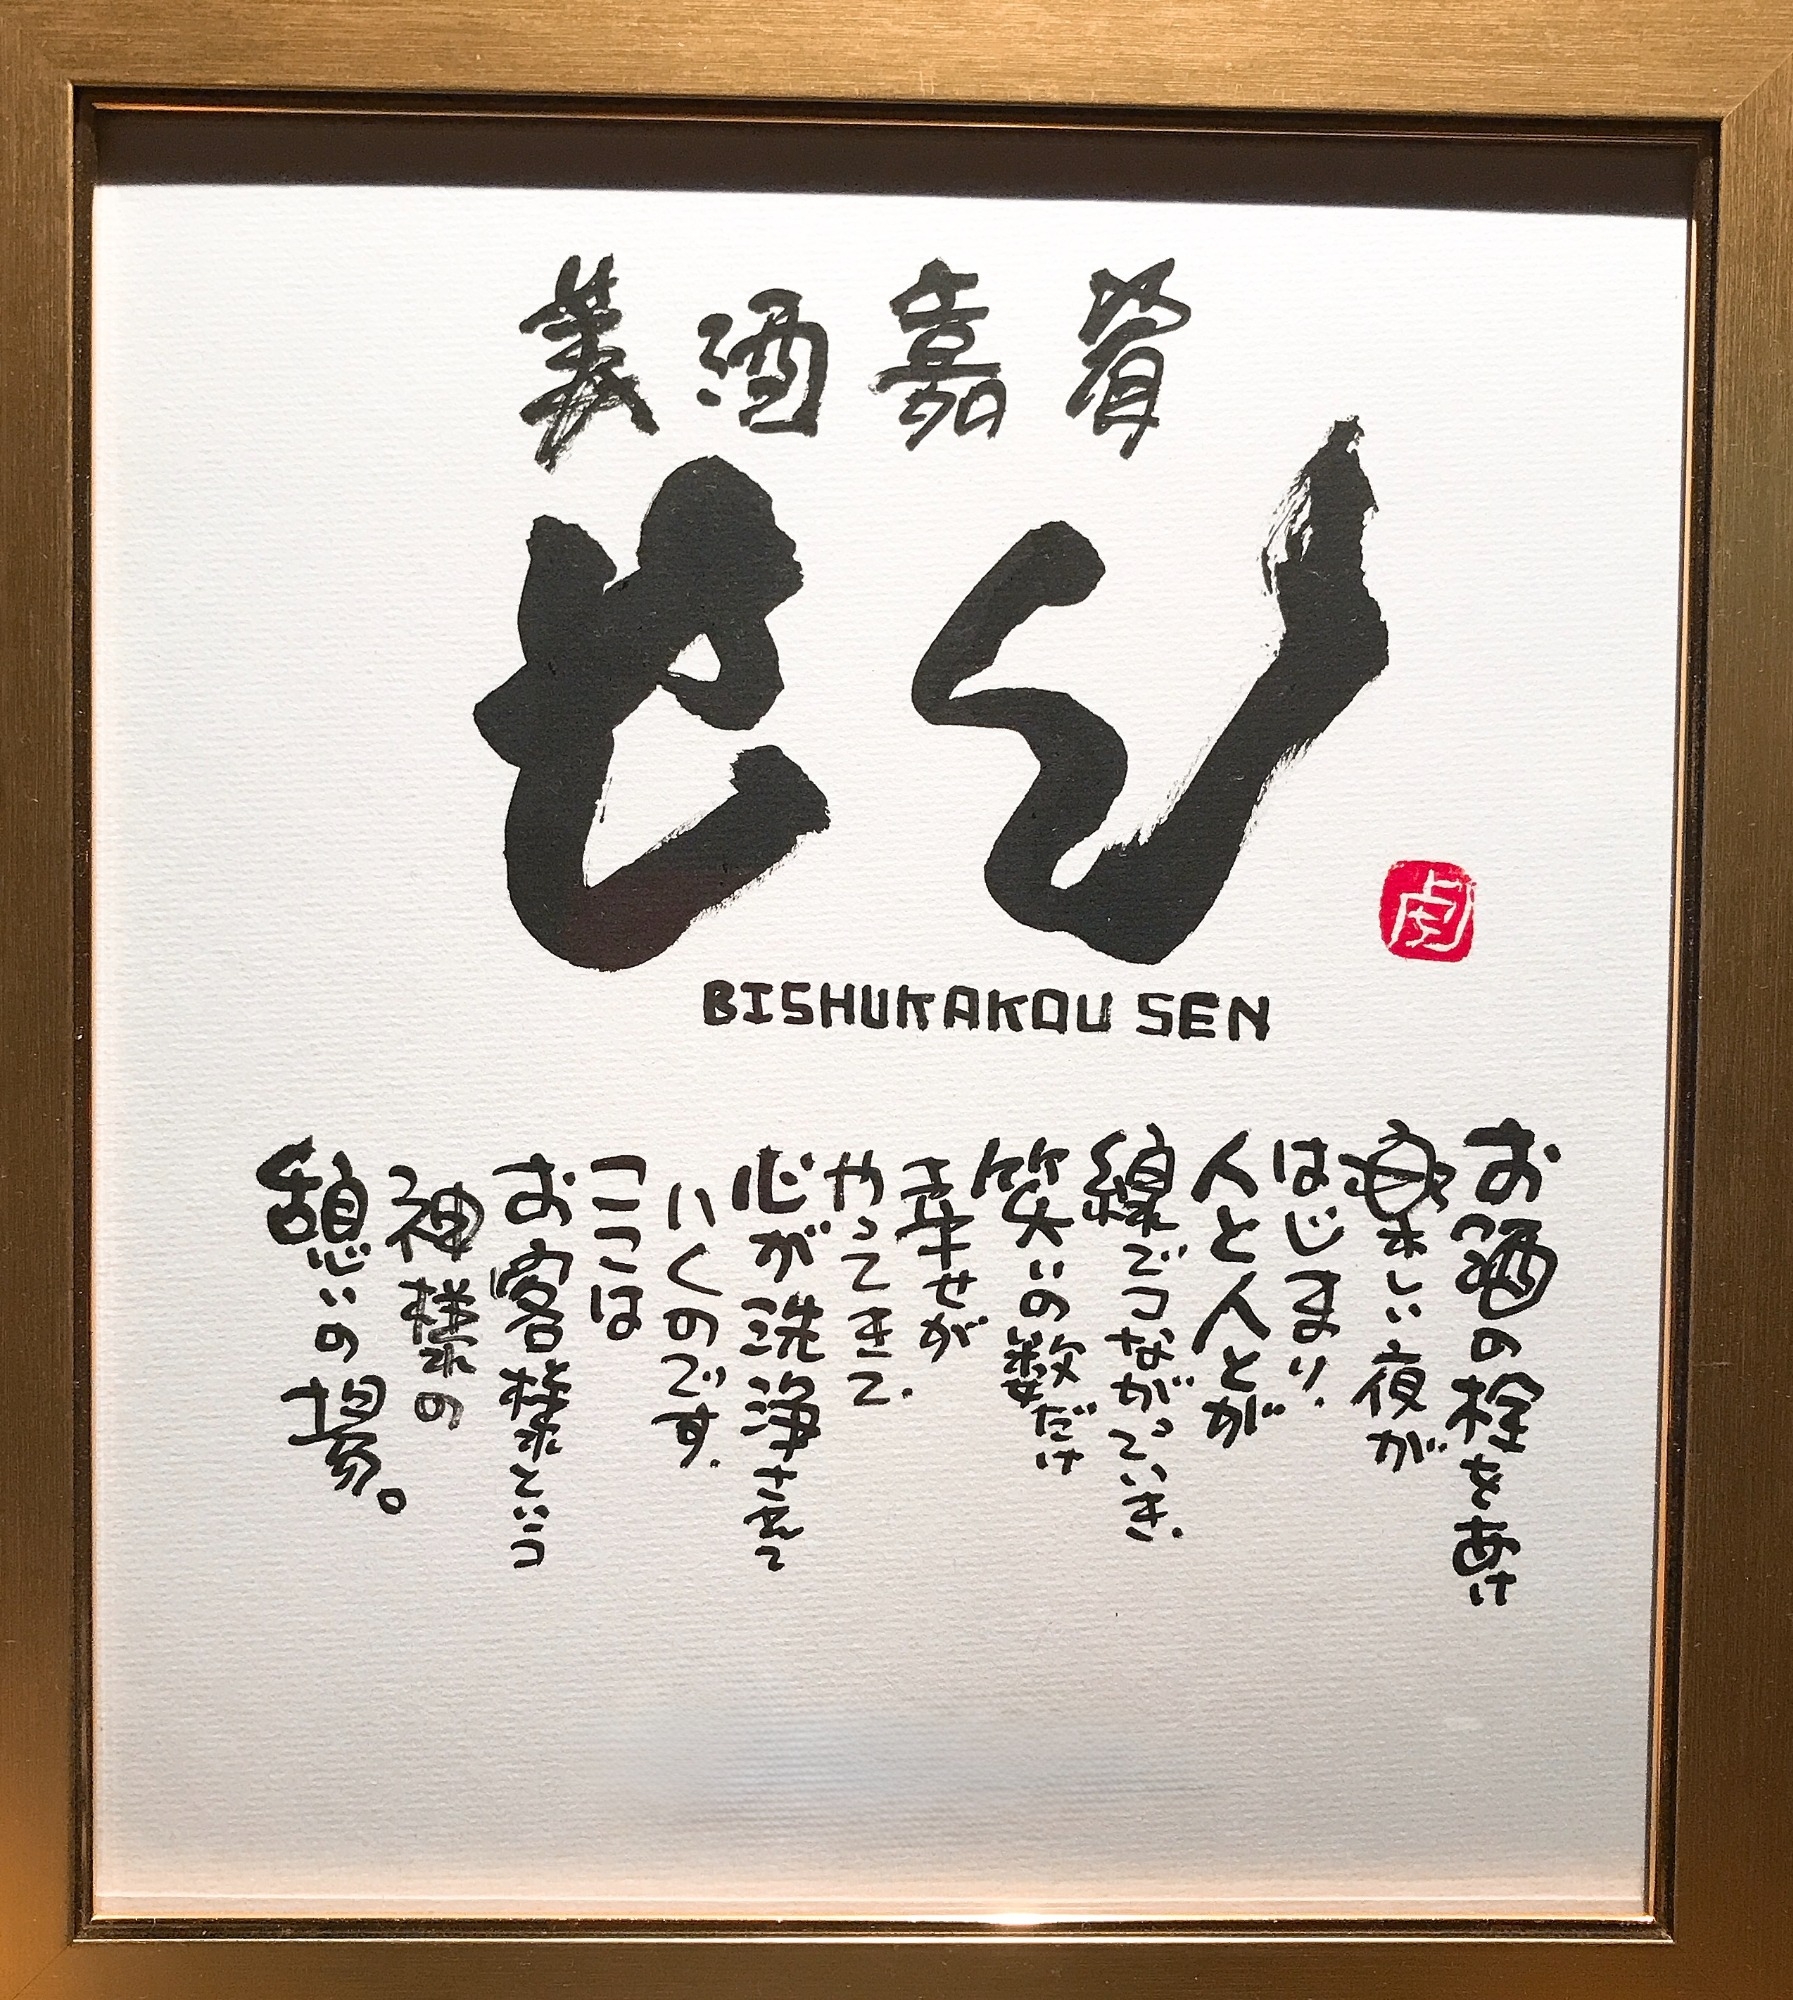 美酒嘉肴
せん
BISHUKAKOU SEN
お酒の栓をあけ
楽しい夜が
はじまり.
人と人とが
線でつながっていき.
笑いの数だけ
幸せが
やってきて.
心が洗浄されて
いくのです.
ここは
お客様という
神様の
憩いの場。